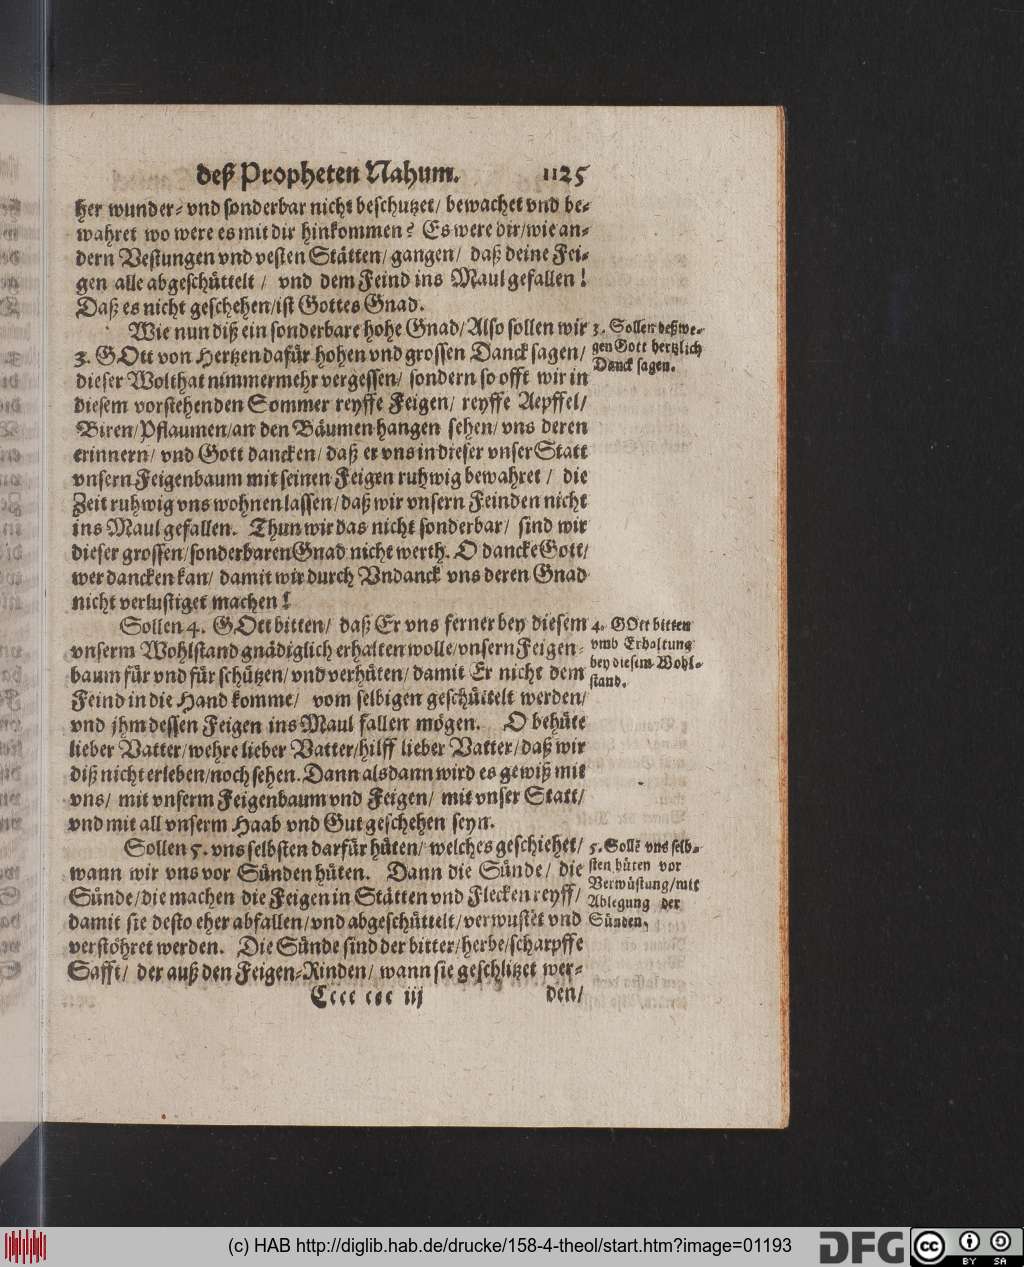 deß Propheten Nahum. 1125
her wunder- vnd sonderbar nicht beschutzet/ bewachet vnd be-
wahret wo were es mit dir hinkommen? Es were dir/wie an-
dern Vestungen vnd vesten Stätten/ gangen/ daß deine Fei-
gen alle abgeschüttelt / vnd dem Feind ins Maul gefallen!
Daß es nicht geschehen/ist Gottes Gnad.
Wie nun diß ein sonderbare hohe Gnad/Also sollen wir
3. GOtt von Hertzen dafür hohen vnd grossen Danck sagen/
dieser Wolthat nimmermehr vergessen/ sondern so offt wir in
diesem vorstehenden Sommer reyffe Feigen/ reyffe Aepffel/
Biren/Pflaumen/an den Bäumen hangen sehen/ vns deren
erinnern/ vnd Gott dancken/ daß er vns in dieser vnser Statt
vnsern Feigenbaum mit seinen Feigen ruhwig bewahret / die
Zeit ruhwig vns wohnen lassen/daß wir vnsern Feinden nicht
ins Maul gefallen. Thun wir das nicht sonderbar/ sind wir
dieser grossen/sonderbaren Gnad nicht werth. O dancke Gott/
wer dancken kan/ damit wir durch Vndanck vns deren Gnad
nicht verlustiget machen!
3. Sollen deßwe-
gen Gott hertzlich
Danck sagen.
Sollen 4. GOtt bitten/ daß Er vns ferner bey diesem
vnserm Wohlstand gnädiglich erhalten wolle/vnsern Feigen-
baum für vnd für schützen/vnd verhüten/ damit Er nicht dem
Feind in die Hand komme/ vom selbigen geschüttelt werden/
vnd jhm dessen Feigen ins Maul fallen mögen. O behüte
lieber Vatter/wehre lieber Vatter/hilff lieber Vatter/daß wir
diß nicht erleben/noch sehen. Dann alsdann wird es gewiß mit
vns/ mit vnserm Feigenbaum vnd Feigen/ mit vnser Statt/
vnd mit all vnserm Haab vnd Gut geschehen seyn.
4. GOtt bitten
vmb Erhaltung
bey diesem Wohl-
stand.
Sollen 5. vns selbsten darfür hüten/ welches geschiehet/
wann wir vns vor Sünden hüten. Dann die Sünde/ die
Sünde/die machen die Feigen in Stätten vnd Flecken reyff/
damit sie desto eher abfallen/vnd abgeschüttelt/verwustet vnd
verstöhret werden. Die Sünde sind der bitter/herbe/scharpffe
Safft/ der auß den Feigen-Rinden/ wann sie geschlitzet wer-
5. Sollẽ vns selb-
sten hüten vor
Verwüstung/mit
Ablegung der
Sünden.
Cccc ccc iij den/
(c) HAB http://diglib.hab.de/drucke/158-4-theol/start.htm?image=01193
DFG
cc BY SA